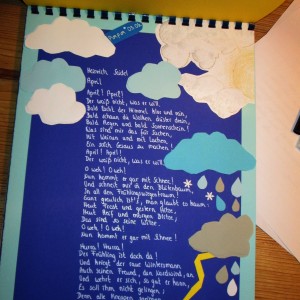 Heinrich Seidel
April
April! April!
Der weiß nicht, was er will.
Bald lacht der Himmel klar und rein,
Bald schaun die Wolken düster drein,
Bald Regen und bald Sonnenschein!
Was sind mir das für Sachen,
Mit Weinen und mit Lachen
Ein solch Gesaus zu machen!
April! April!
Der weiß nicht, was er will.
O weh! O weh!
Nun kommt er gar mit Schnee!
Und schneit mir in den Blütenbaum,
In all den Frühlingswiegentraum!
Ganz greulich ist's, man glaubt es kaum:
Heut Frost und gestern Hitze,
Heut Reif und morgen Blitze;
Das sind so seine Witze.
O weh! O weh!
Nun kommt er gar mit Schnee!
Hurra! Hurra!
Der Frühling ist doch da!
Und kriegt der raue Wintersmann
Auch seinen Freund, den Nordwind, an
Und wehrt er sich, so gut er kann,
Es soll ihm nicht gelingen;
Denn alle Knospen springen,